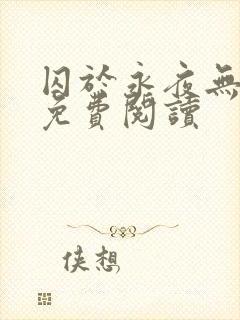 囚於永夜無
免費閱讀
侠想